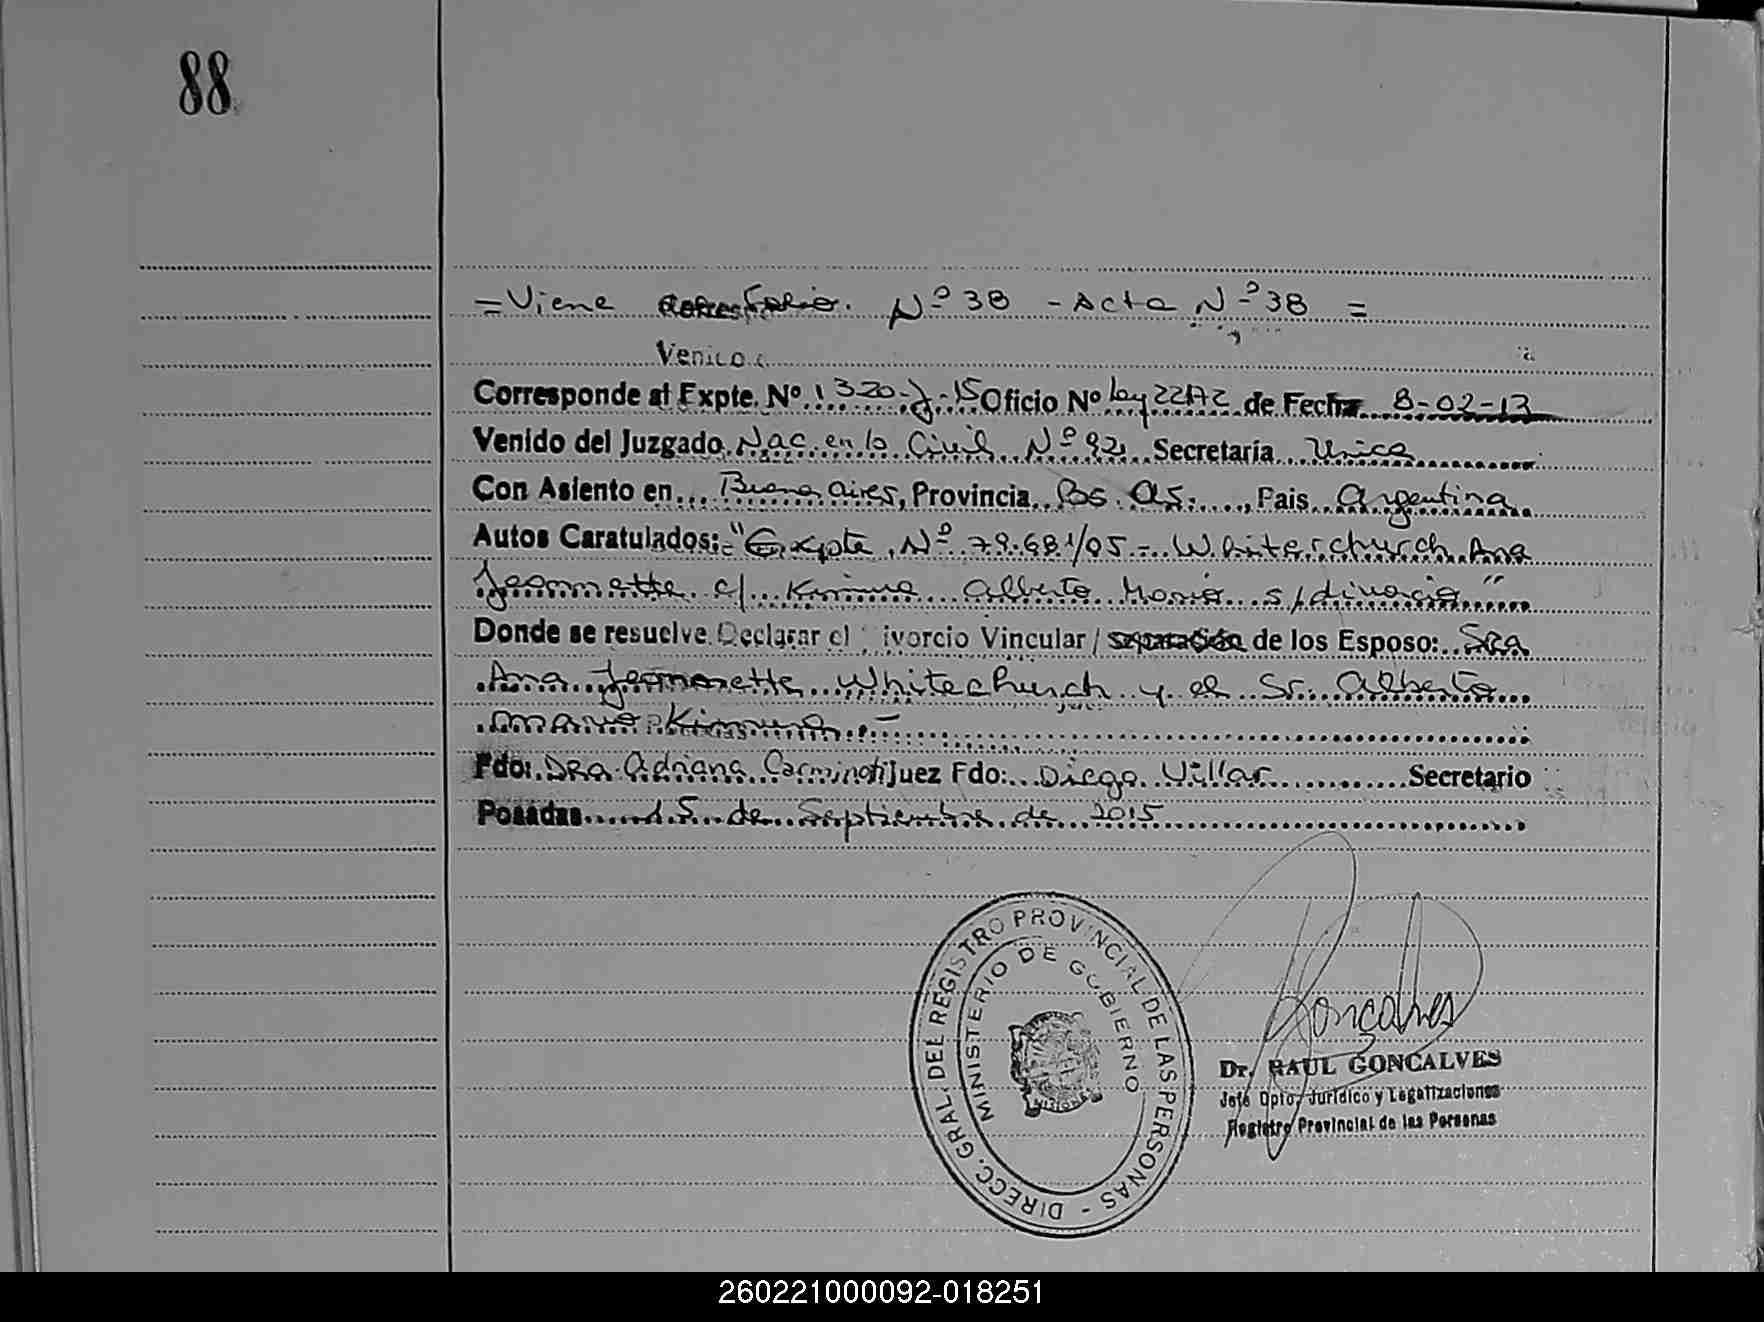 88
= Viene Folio. Nº 38 - Acta Nº 38 =
Corresponde at Expte. Nº 1320-J-15 Oficio Nº ley 22172 de Fecha 8-02-13
Venido del Juzgado Nac. en lo Civil Nº 92 Secretaría Unica
Con Asiento en Buenos Aires, Provincia Bs. As., Pais Argentina
Autos Caratulados: "Expte. Nº 79.681/05 - Whitechurch Ana
Jeannette c/ Kimura Alberto Mario s/divorcio"
Donde se resuelve. Declarar el ivorcio Vincular / separación de los Esposo: Sra
Ana Jeannette Whitechurch y el Sr. Alberto
Mario Kimura.-
Fdo: Dra. Adriana Juez Fdo: Diego Villar Secretario
Posadas 15 de Septiembre de 2015
DIRECC. GRAL. DEL REGISTRO PROVINCIAL DE LAS PERSONAS -
MINISTERIO DE GOBIERNO
MISIONES
Goncalves
Dr. RAUL GONCALVES
Jefe Dpto. Jurídico y Legalizaciones
Registro Provincial de las Personas
260221000092-018251